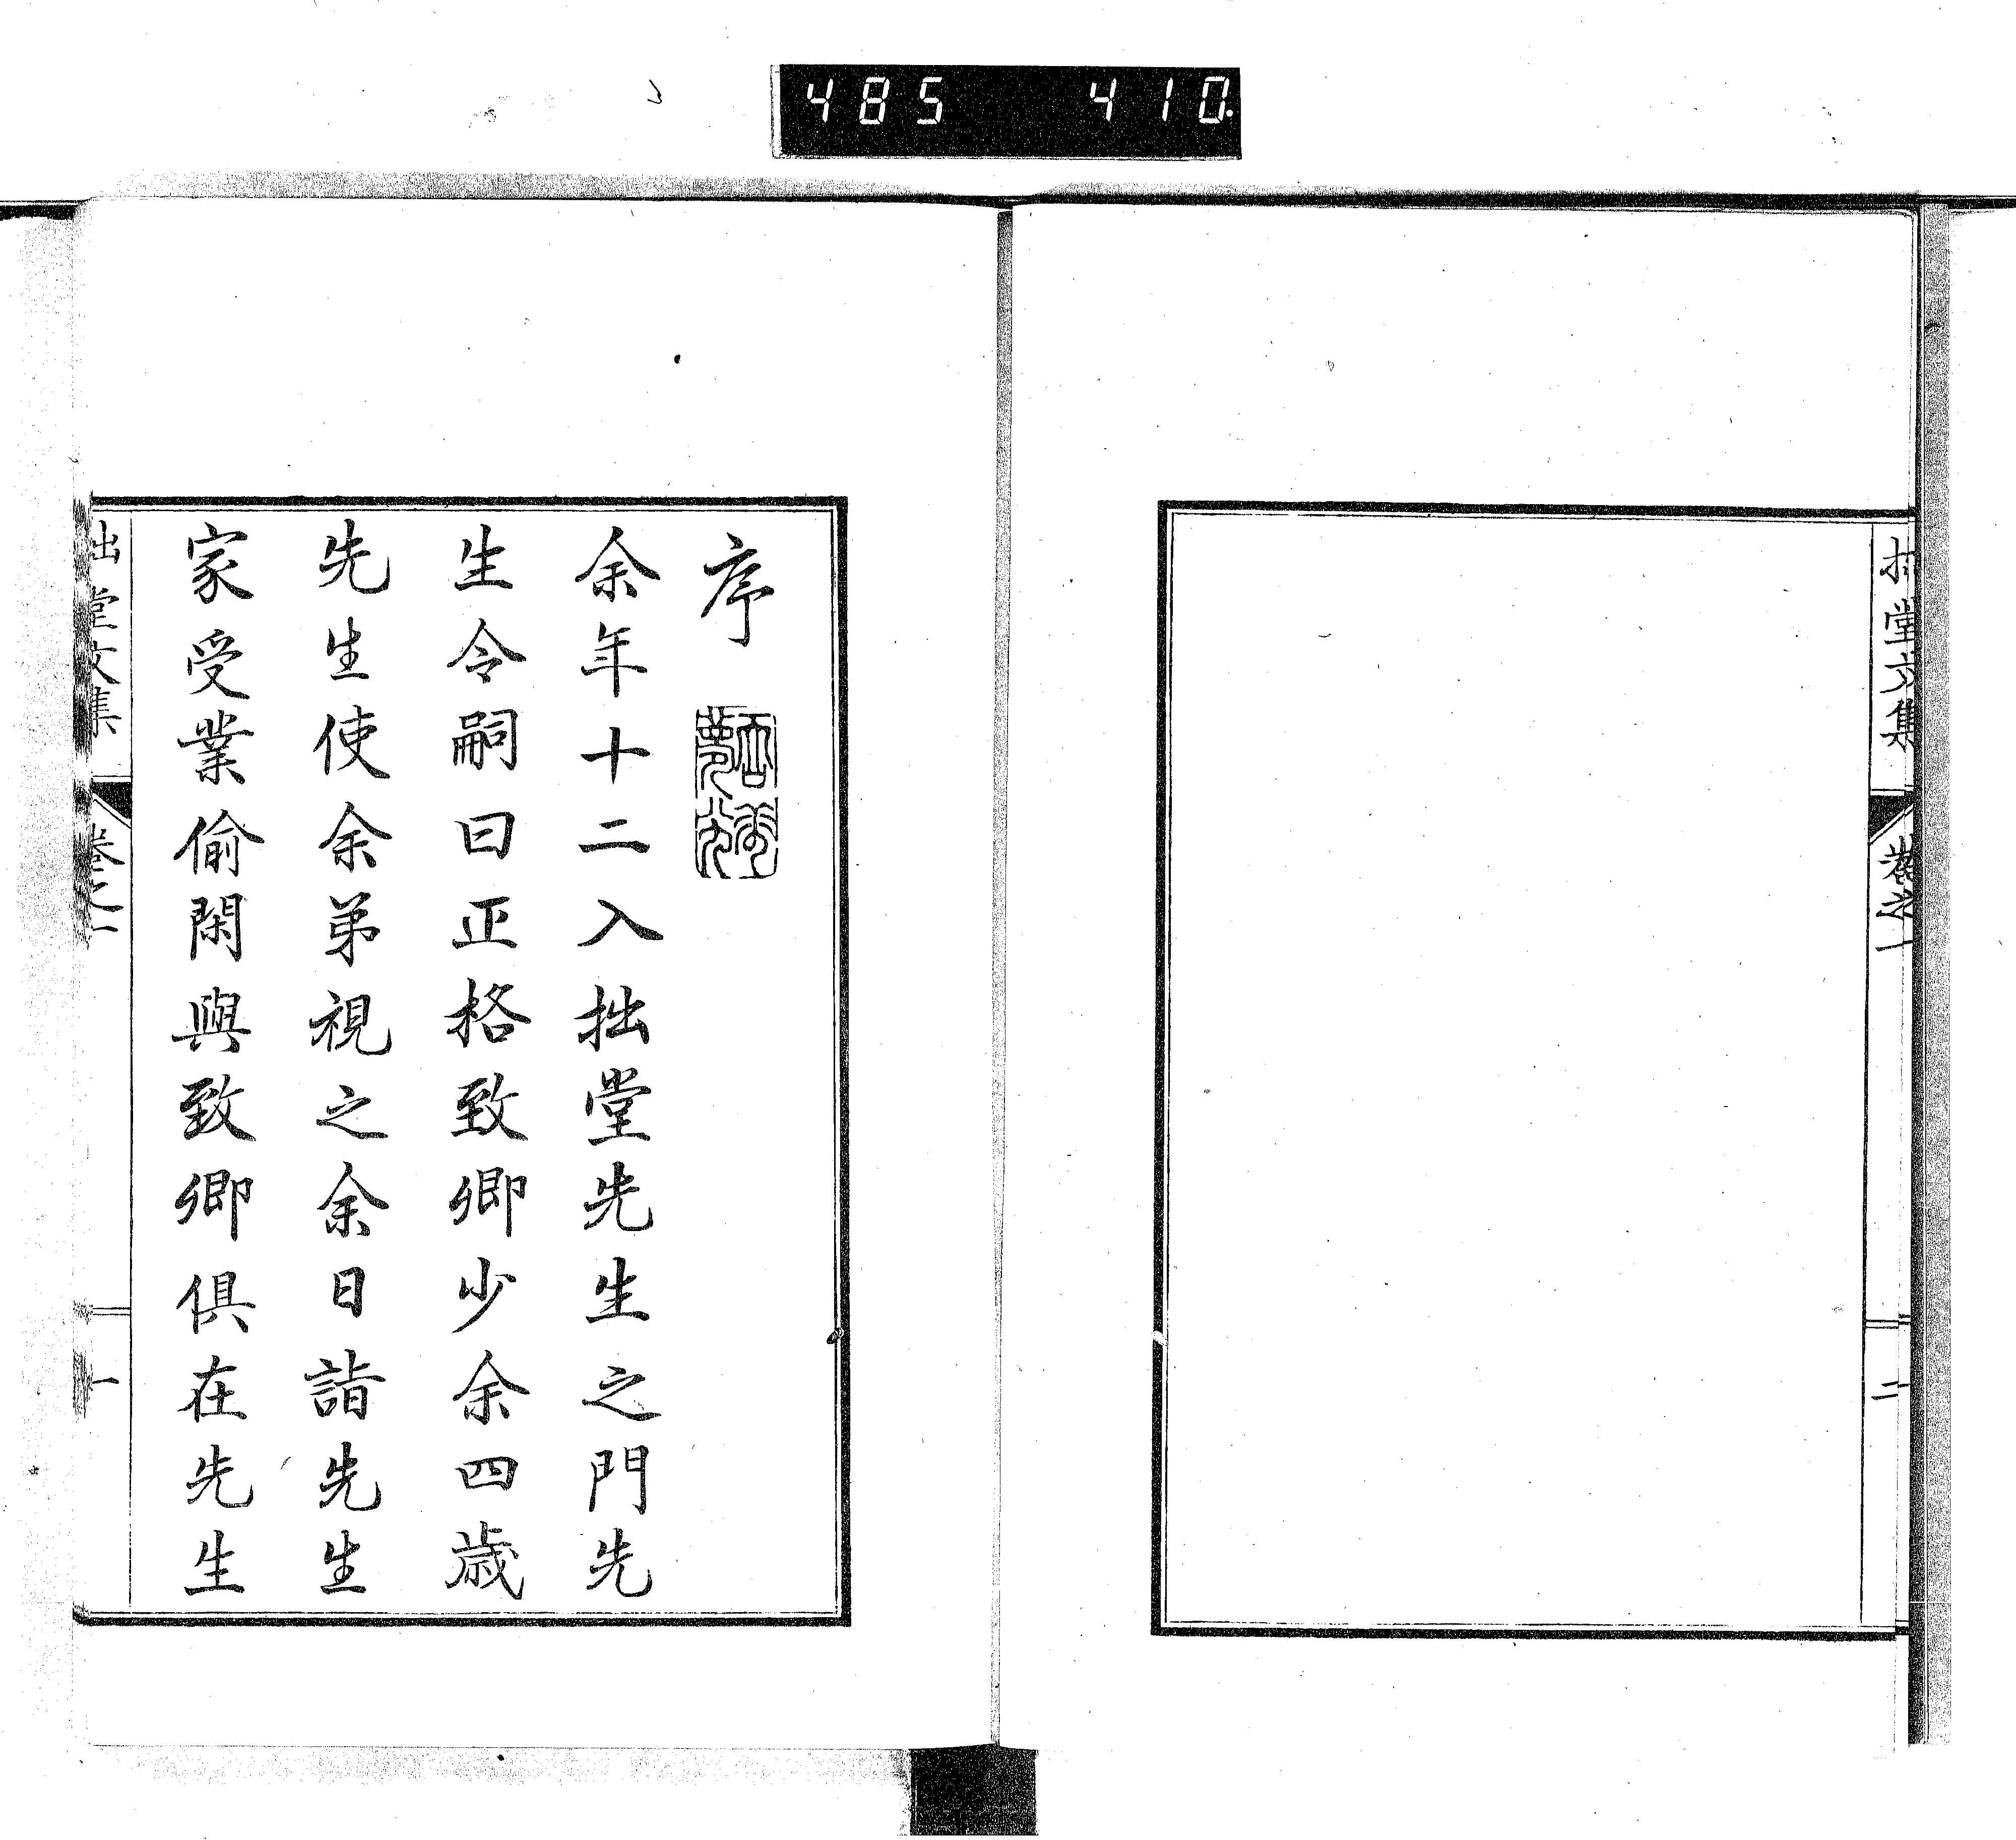 485 410.
拙堂文集 卷之一 二
序
余年十二入拙堂先生之門先
生令嗣曰正格致卿少余四歲
先生使余弟視之余日詣先生
家受業偷閑與致卿俱在先生
拙堂文集 卷之一 一